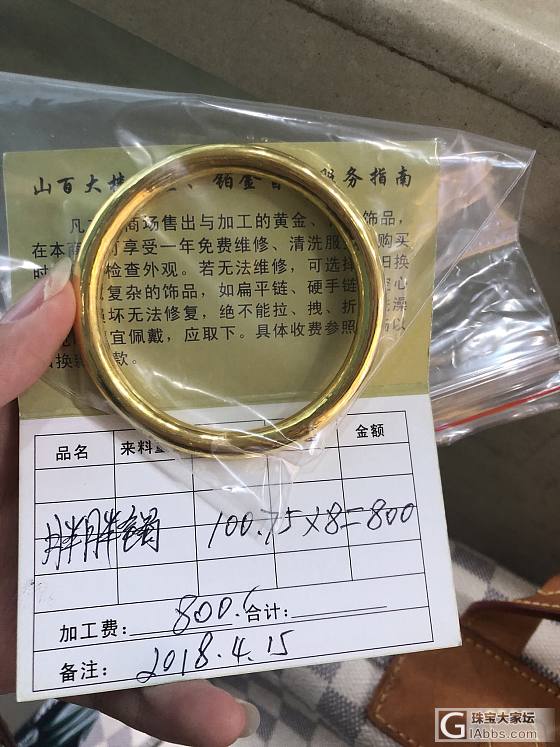 山百大楼 、铂金首 服务指南
凡 商场售出与加工的黄金、 饰品,
在本商 可享受一年免费维修、清洗服 购买
时 检查外观。若无法维修,可选择 旧换
复杂的饰品,如扁平链、硬手链 空心
损坏无法修复,绝不能拉、拽、折 澡
宜佩戴,应取下。具体收费参照 以
旧换 款。
品名 来料 金额
胖胖镯 100.75×8=800
加工费: 800. 合计:
备注: 2018.4.15
G 珠宝大家坛
GIabbs.com